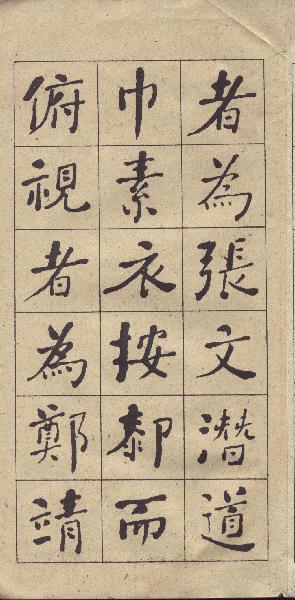 者為張文潛道
巾素衣按䣛而
俯視者為鄭靖